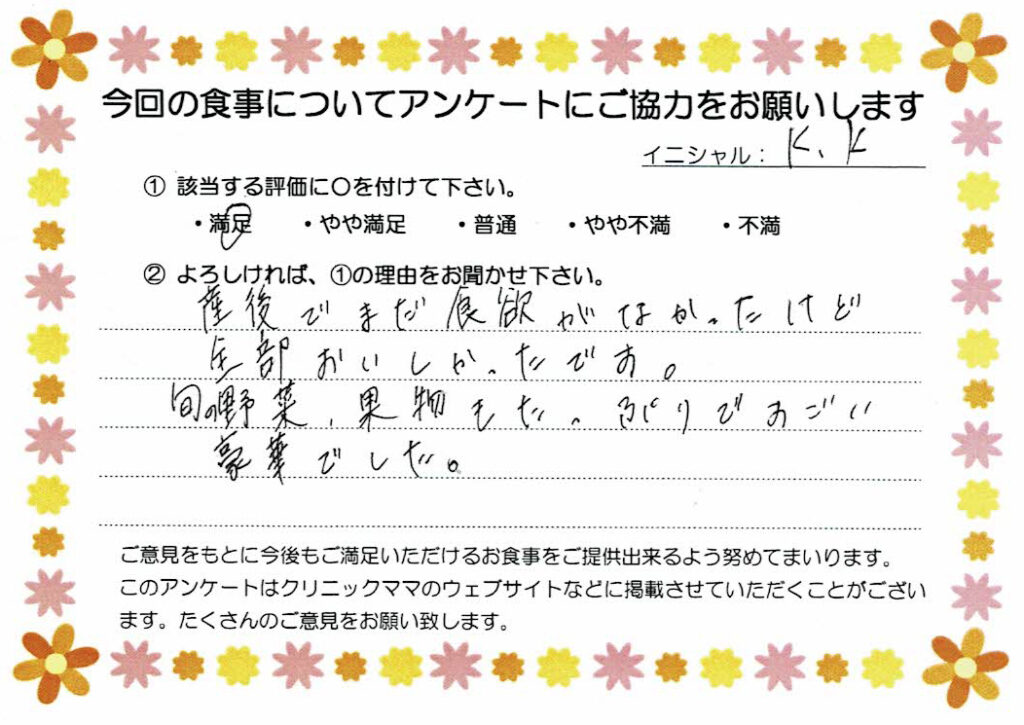 今回の食事についてアンケートにご協力をお願いします
イニシャル： K、K
① 該当する評価に〇を付けて下さい。
・満足 ・やや満足 ・普通 ・やや不満 ・不満
② よろしければ、①の理由をお聞かせ下さい。
産後でまだ食欲がなかったけど
全部おいしかったです。
旬の野菜、果物もたっぷりですごい
豪華でした。
ご意見をもとに今後もご満足いただけるお食事をご提供出来るよう努めてまいります。
このアンケートはクリニックママのウェブサイトなどに掲載させていただくことがござい
ます。たくさんのご意見をお願い致します。